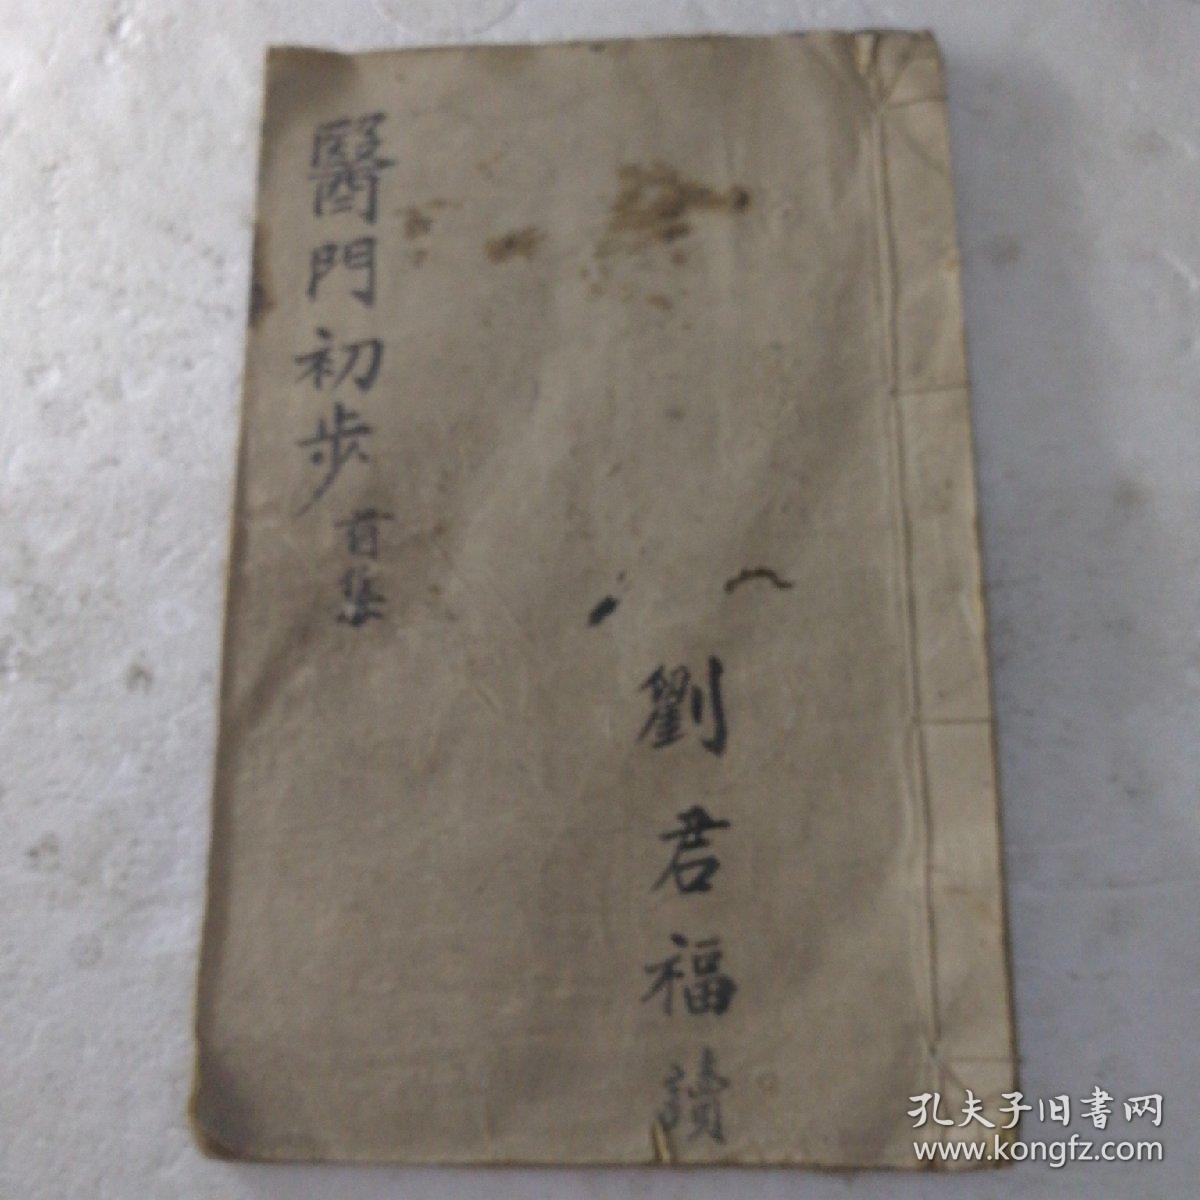 醫門初步
首集
劉君福讀
孔夫子旧書网
www.kongfz.com